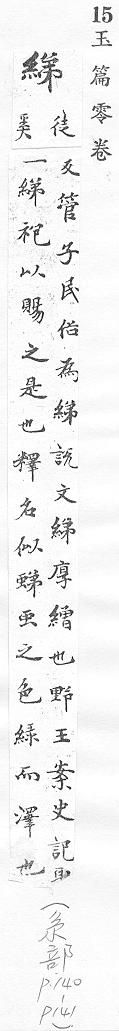 15玉篇零卷
綈 徒
奚
反管子民俗為綈說文綈厚繒也野王案史記取
一綈袍以賜之是也釋名似蝭虫之色綠而澤也
(糸部
p.140
-
p.141)